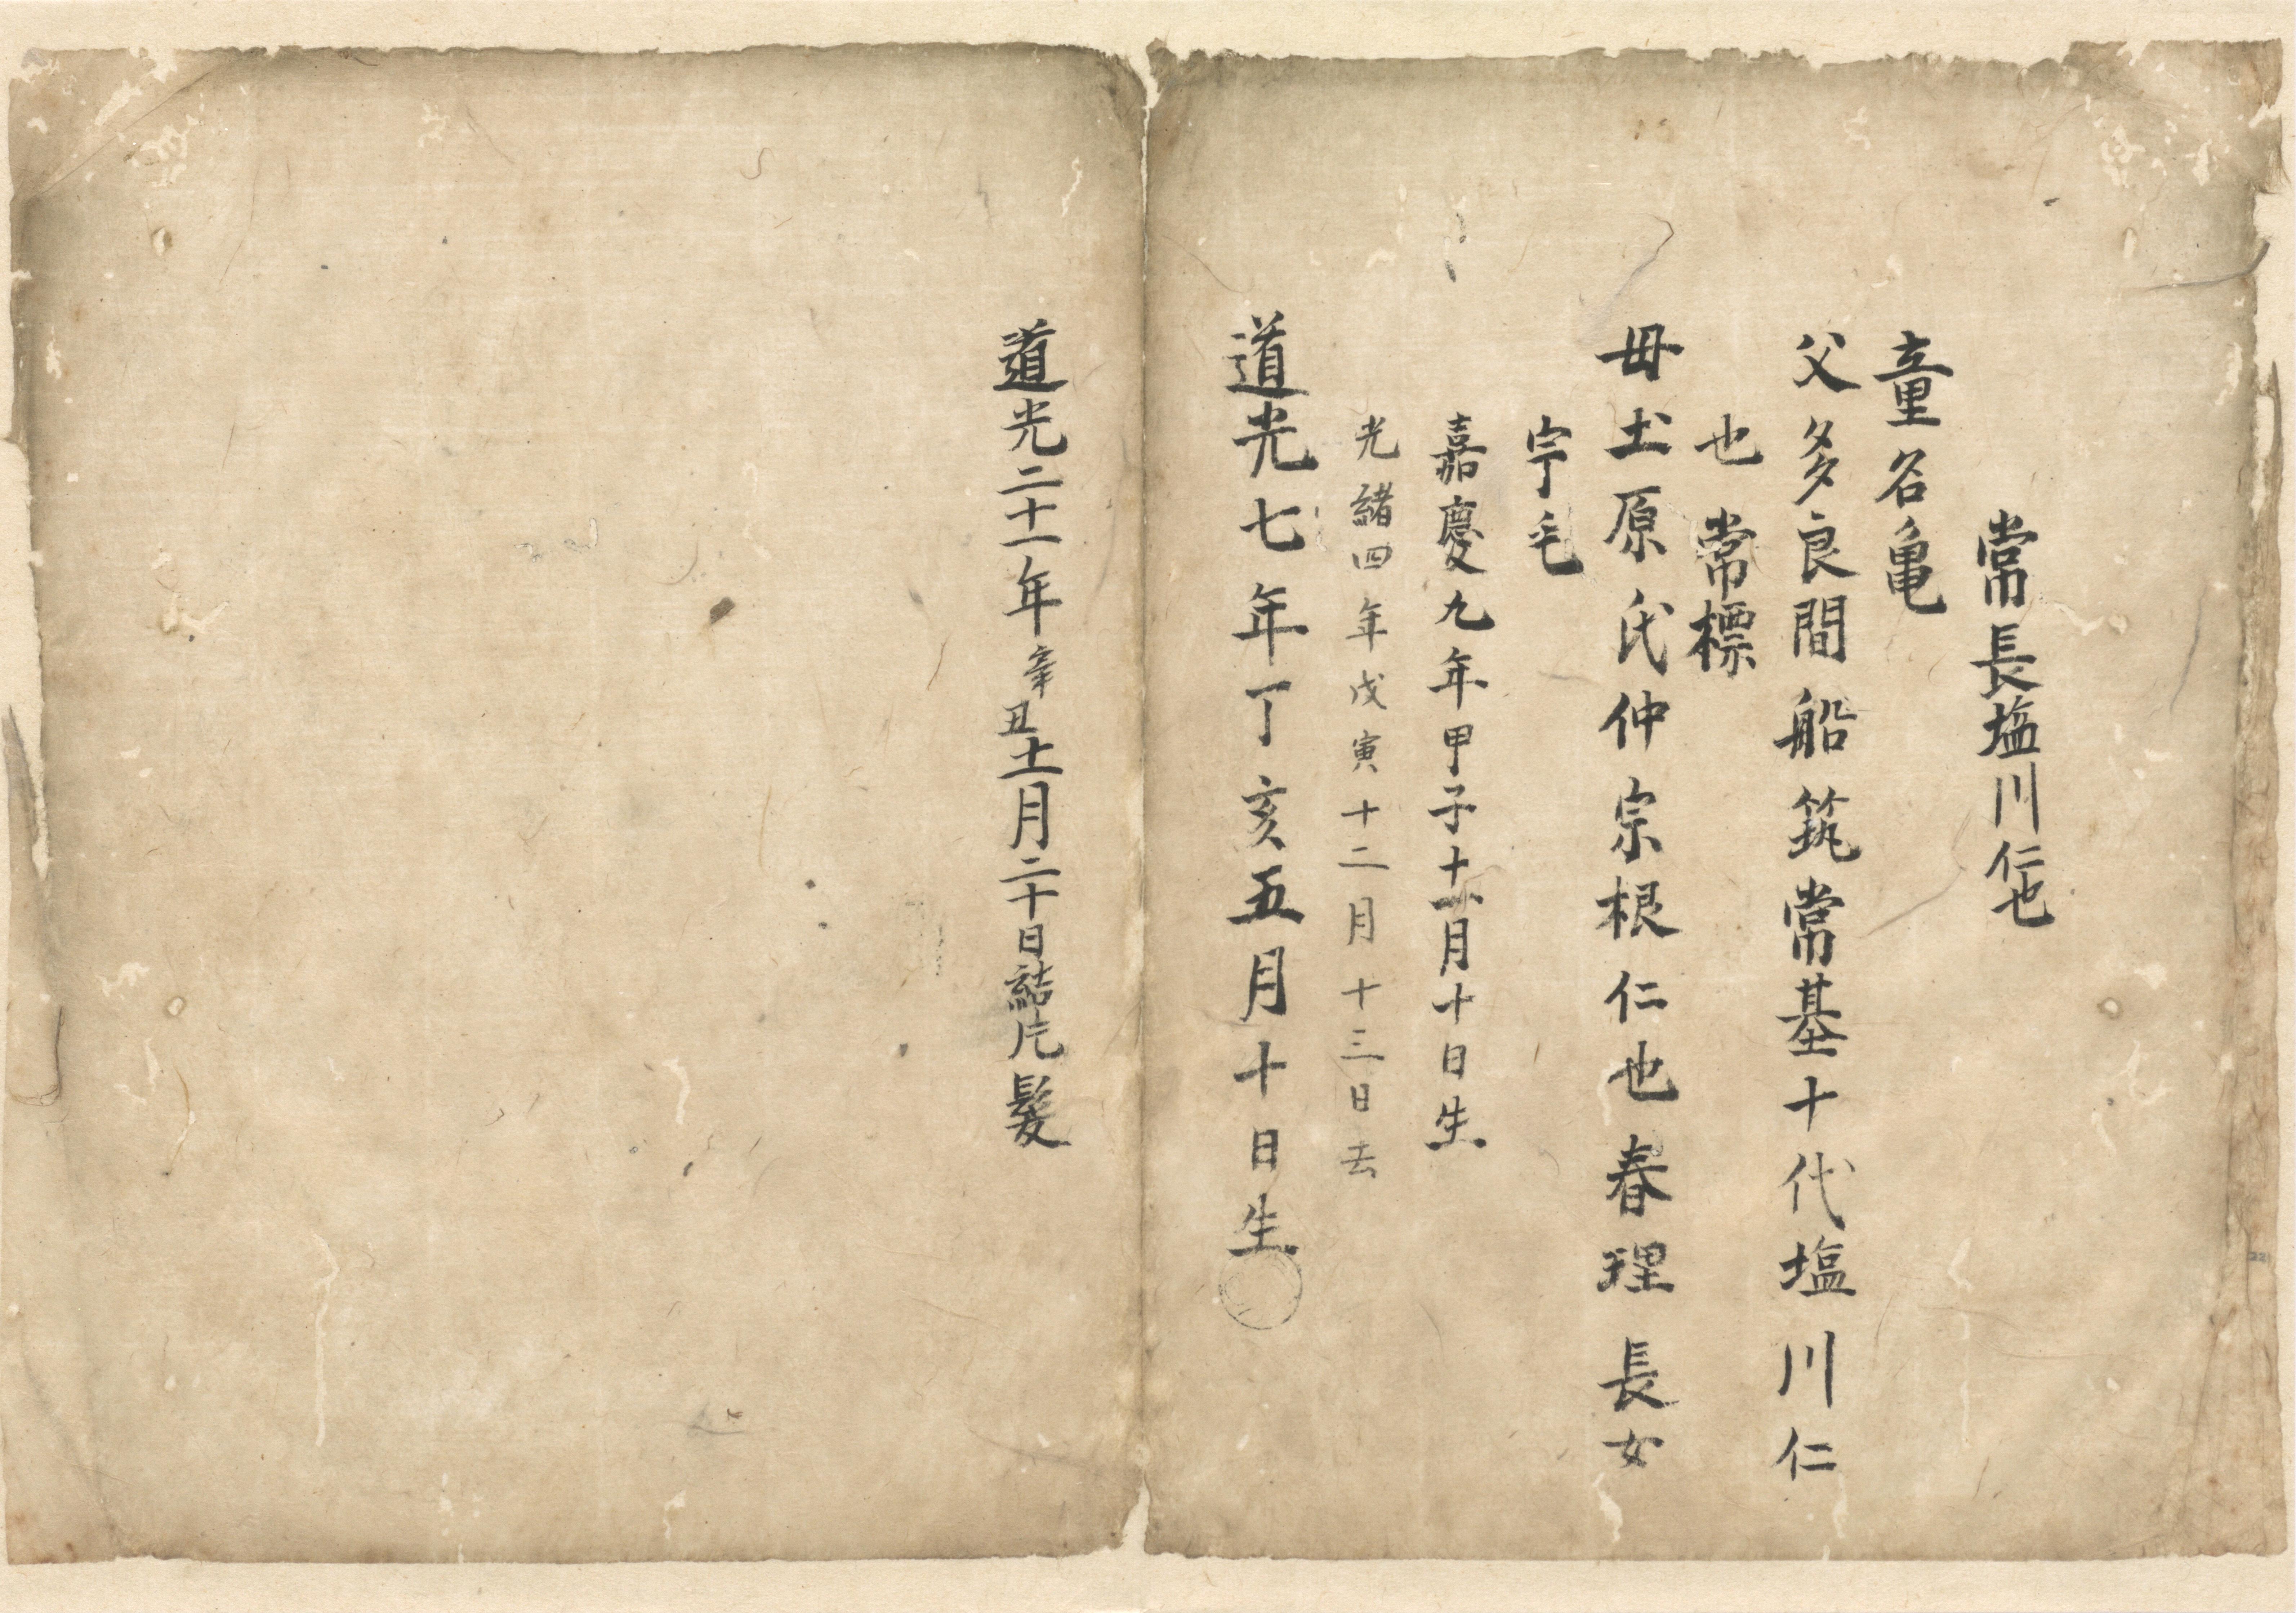 常長塩川仁也
童名亀
父多良間船筑常基十代塩川仁
也常標
母土原氏仲宗根仁也春理長女
宇毛
嘉慶九年甲子十一月十日生
光緒四年戊寅十二月十三日去
道光七年丁亥五月十日生
道光二十一年辛丑十一月二十日結片髪